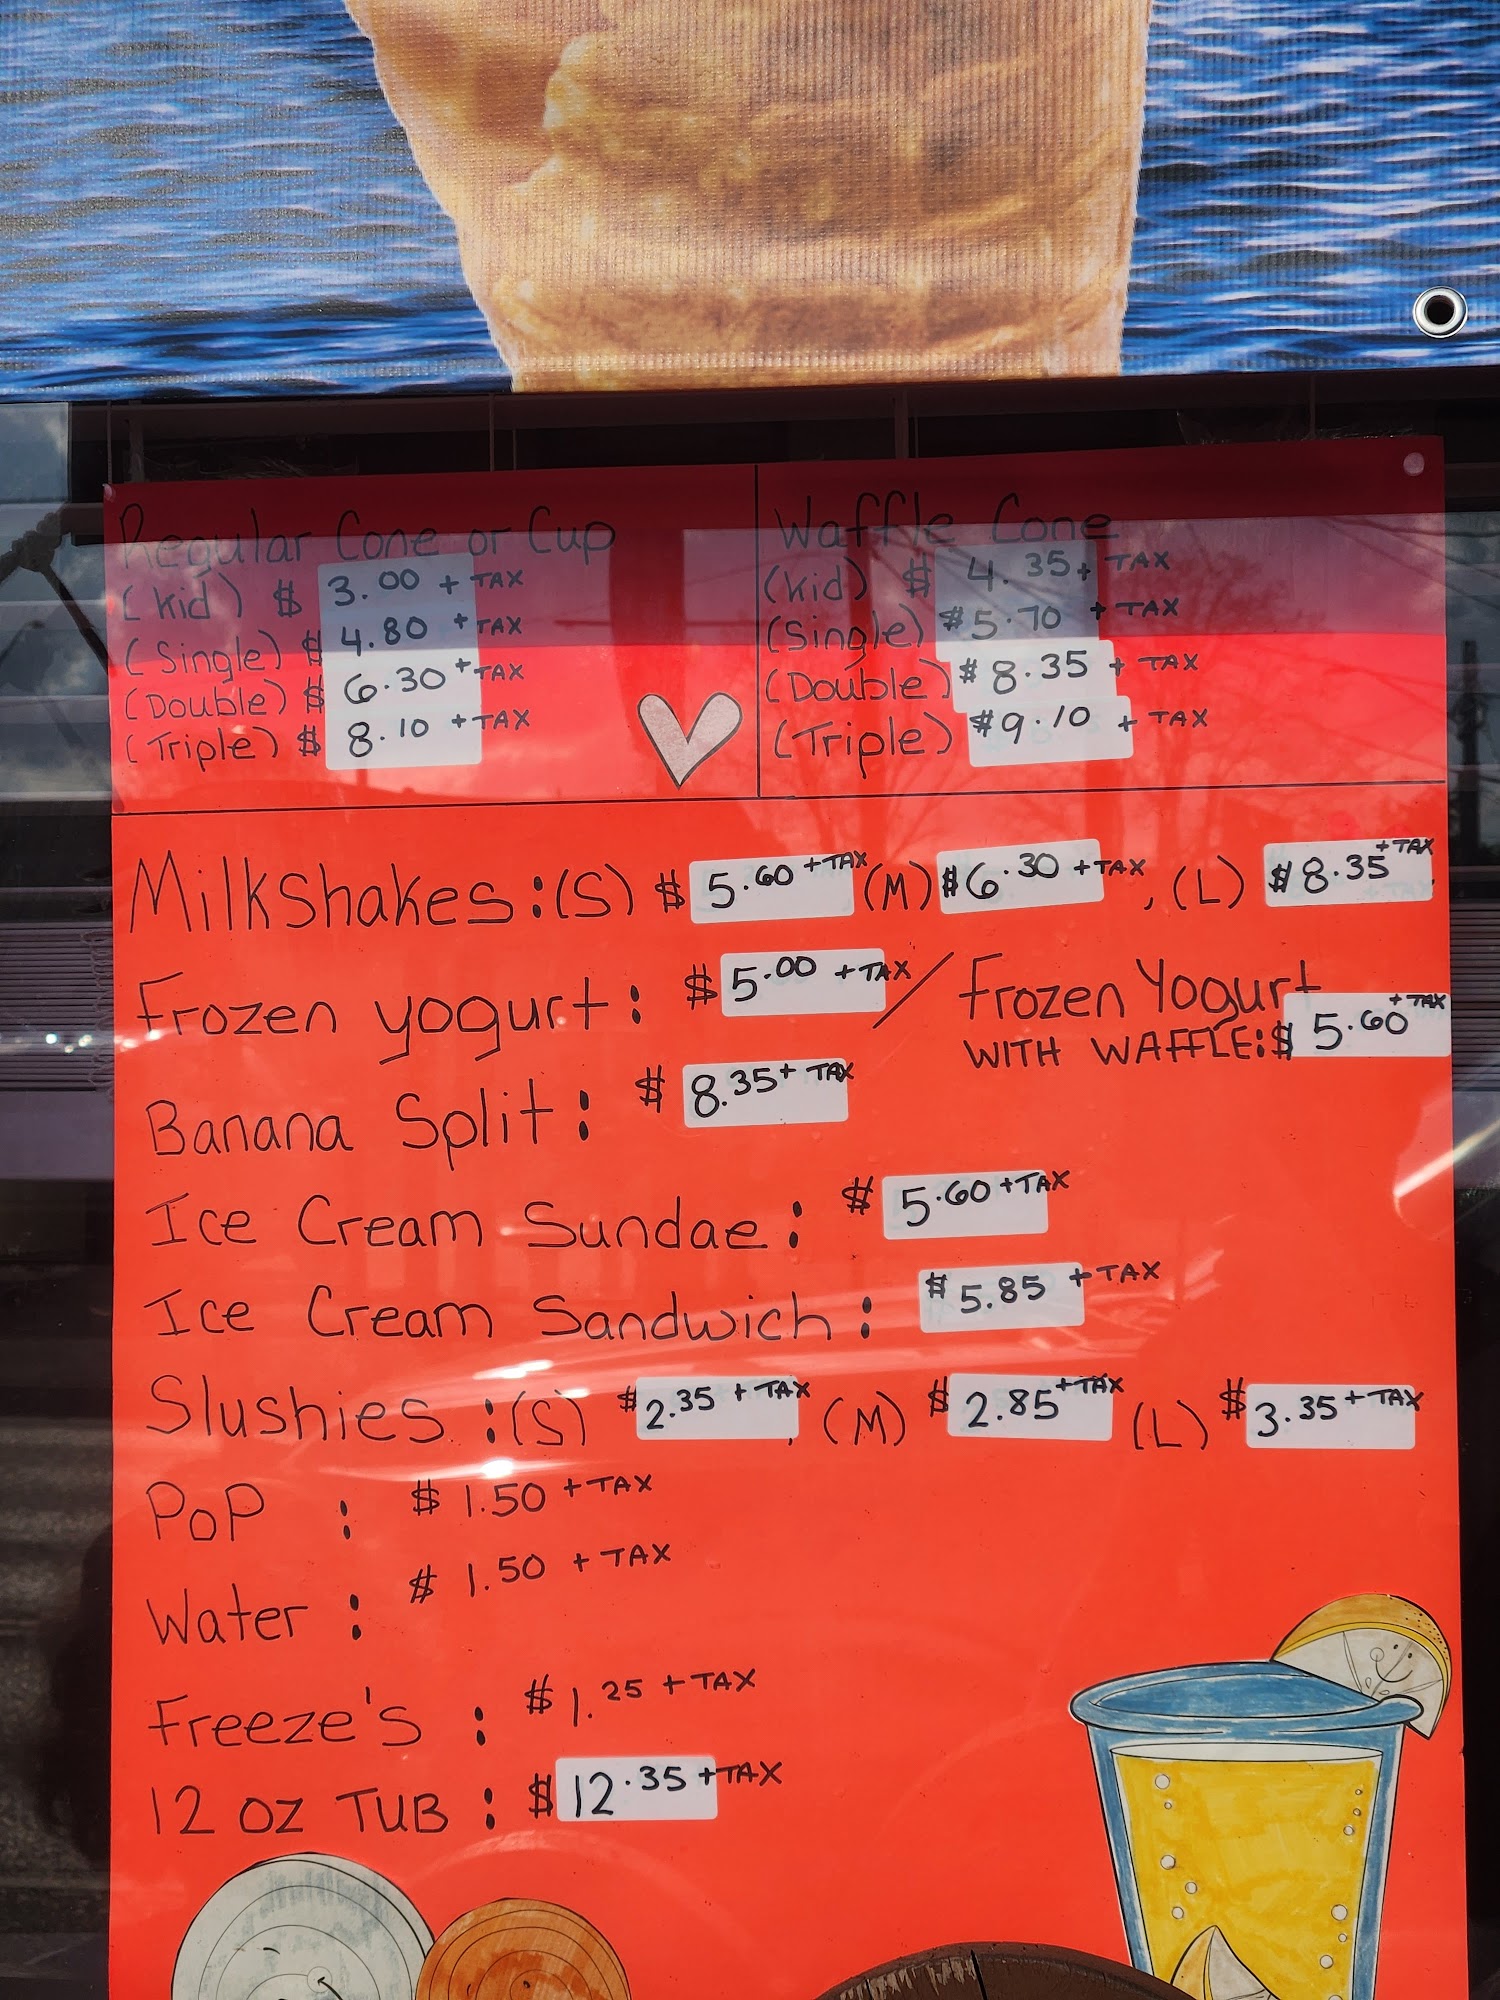 Regular Cone or Cup
(kid) $ 3.00 + TAX
(Single) $ 4.80 + TAX
(Double) $ 6.30 + TAX
(Triple) $ 8.10 + TAX
Waffle Cone
(kid) $ 4.35 + TAX
(Single) $5.70 + TAX
(Double) $8.35 + TAX
(Triple) $9.10 + TAX
Milkshakes :(S) $ 5.60 + TAX (M) $6.30 + TAX , (L) $8.35 + TAX
Frozen yogurt : $5.00 + TAX / Frozen Yogurt
WITH WAFFLE:$ 5.60 + TAX
Banana Split : $ 8.35 + TAX
Ice Cream Sundae : $ 5.60 + TAX
Ice Cream Sandwich : $5.85 + TAX
Slushies :(S) $2.35 + TAX , (M) $2.85 + TAX (L) $3.35 + TAX
PoP : $ 1.50 + TAX
Water : $ 1.50 + TAX
Freeze's : $1.25 + TAX
12 OZ TUB : $12.35 + TAX